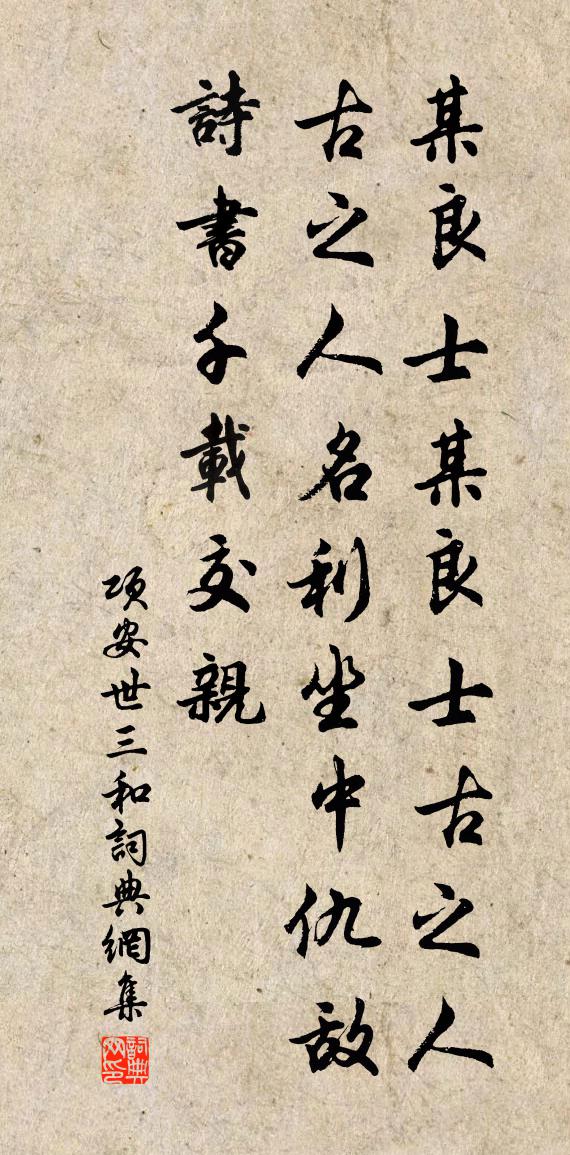 某良士某良士古之人
古之人名利坐中仇敌
詩書千載交親
項安世三和詞典網集
詞典网印